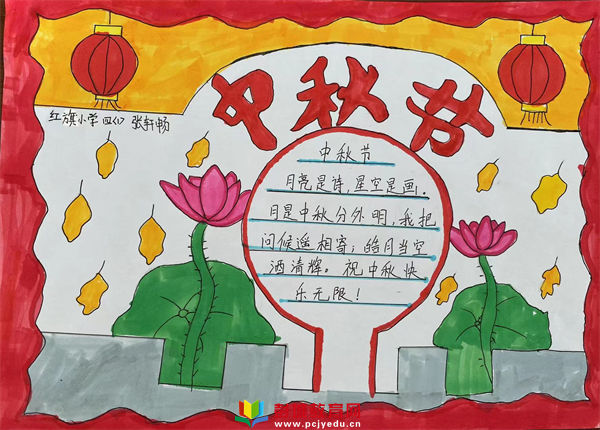 中秋节
红旗小学 四(1) 张轩畅
中秋节
月亮是诗,星空是画。
月是中秋分外明,我把
问候遥相寄;皓月当空
洒清辉。祝中秋快
乐无限!
www.pcjyedu.cn